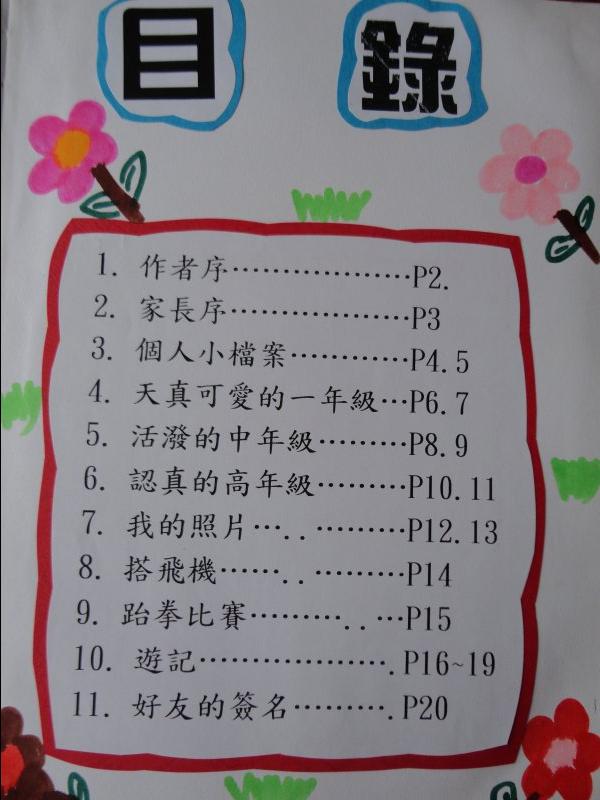 目錄
1. 作者序………………P2.
2. 家長序………………P3
3. 個人小檔案…………P4.5
4. 天真可愛的一年級…P6.7
5. 活潑的中年級………P8.9
6. 認真的高年級………P10.11
7. 我的照片…..………P12.13
8. 搭飛機……..………P14
9. 跆拳比賽………..…P15
10. 遊記……………….P16~19
11. 好友的簽名……….P20